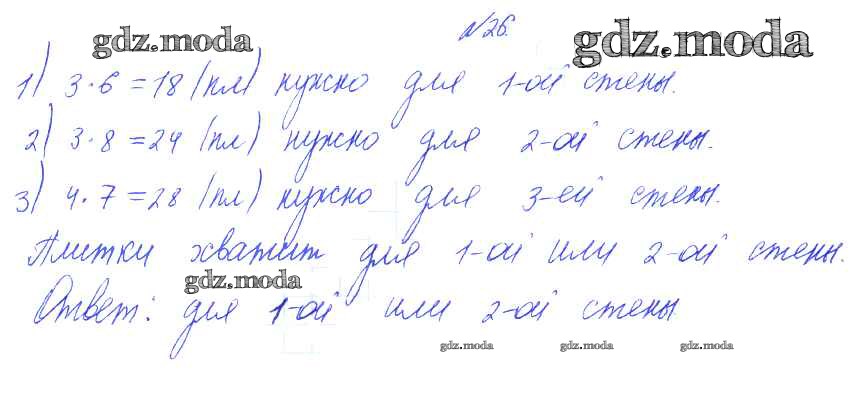 №26.
gdz.moda gdz.moda
1) 3·6=18 (пл) нужно для 1-ой стены.
2) 3·8=24 (пл) нужно для 2-ой стены.
3) 4·7=28 (пл) нужно для 3-ей стены.
Плитки хватит для 1-ой или 2-ой стены.
gdz.moda
Ответ: для 1-ой или 2-ой стены.
gdz.moda gdz.moda gdz.moda